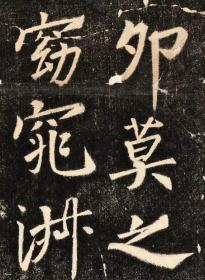 夘莫之
窈窕